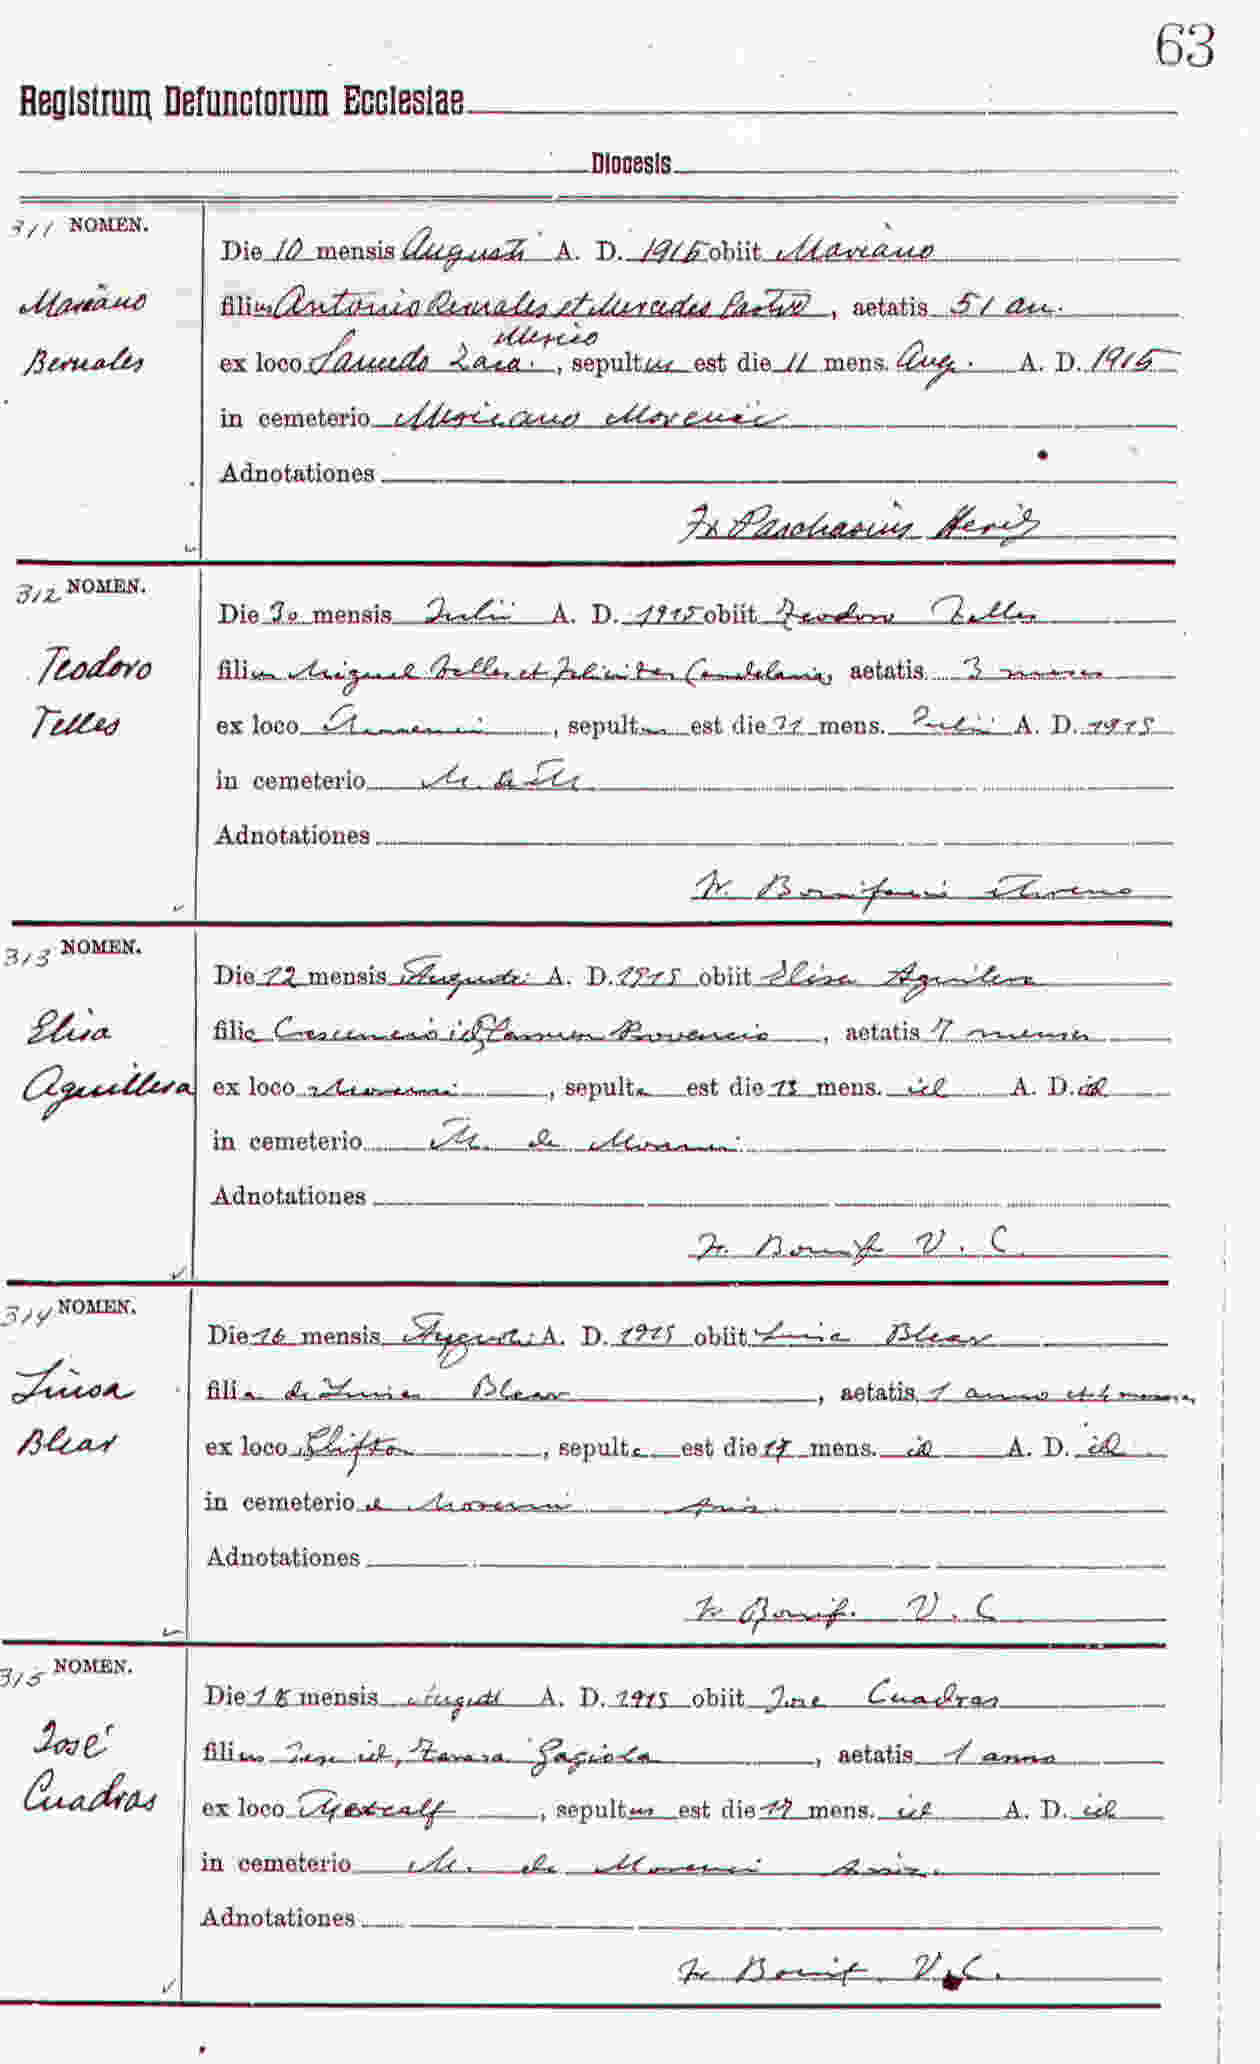 63
Registrum Defunctorum Ecclesiae
Diocesis
311 NOMEN.
Mariano
Beruales
Die 10 mensis Augusti A. D. 1915 obiit Mariano
filius Antonio Beruales et Mercedes Castro, aetatis 51 an.
Mexico
ex loco Zaca., sepultus est die 11 mens. Aug. A. D. 1915
in cemeterio Mexicano Morenci
Adnotationes
Fr Paschasius
312 NOMEN.
Teodoro
Telles
Die 30 mensis Julii A. D. 1915 obiit Teodoro Telles
filius Miguel Telles et Candelaria, aetatis 3 meses
ex loco Morenci, sepultus est die 31 mens. Julii A. D. 1915
in cemeterio M. de M
Adnotationes
Fr. Bonifacio Moreno
313 NOMEN.
Elisa
Aguillera
Die 12 mensis Augusti A. D. 1915 obiit Elisa Aguilera
filia Crescencio id Carmen Provencio, aetatis 7 menses
ex loco Morenci, sepulta est die 13 mens. id A. D. id
in cemeterio M. de Morenci
Adnotationes
Fr. Bonif V. C.
314 NOMEN.
Luisa
Blear
Die 16 mensis Augusti A. D. 1915 obiit Luisa Blear
filia de Luisa Blear, aetatis 1 anno et
ex loco Clifton, sepulta est die 17 mens. id A. D. id
in cemeterio d Morenci Ariz.
Adnotationes
Fr Bonif. V. C
315 NOMEN.
José
Cuadras
Die 18 mensis Augusti A. D. 1915 obiit Jose Cuadras
filius Jose id, Gagiola, aetatis 1 anno
ex loco Metcalf, sepultus est die 17 mens. id A. D. id
in cemeterio M. de Morenci Ariz.
Adnotationes
Fr Bonif. V. C.